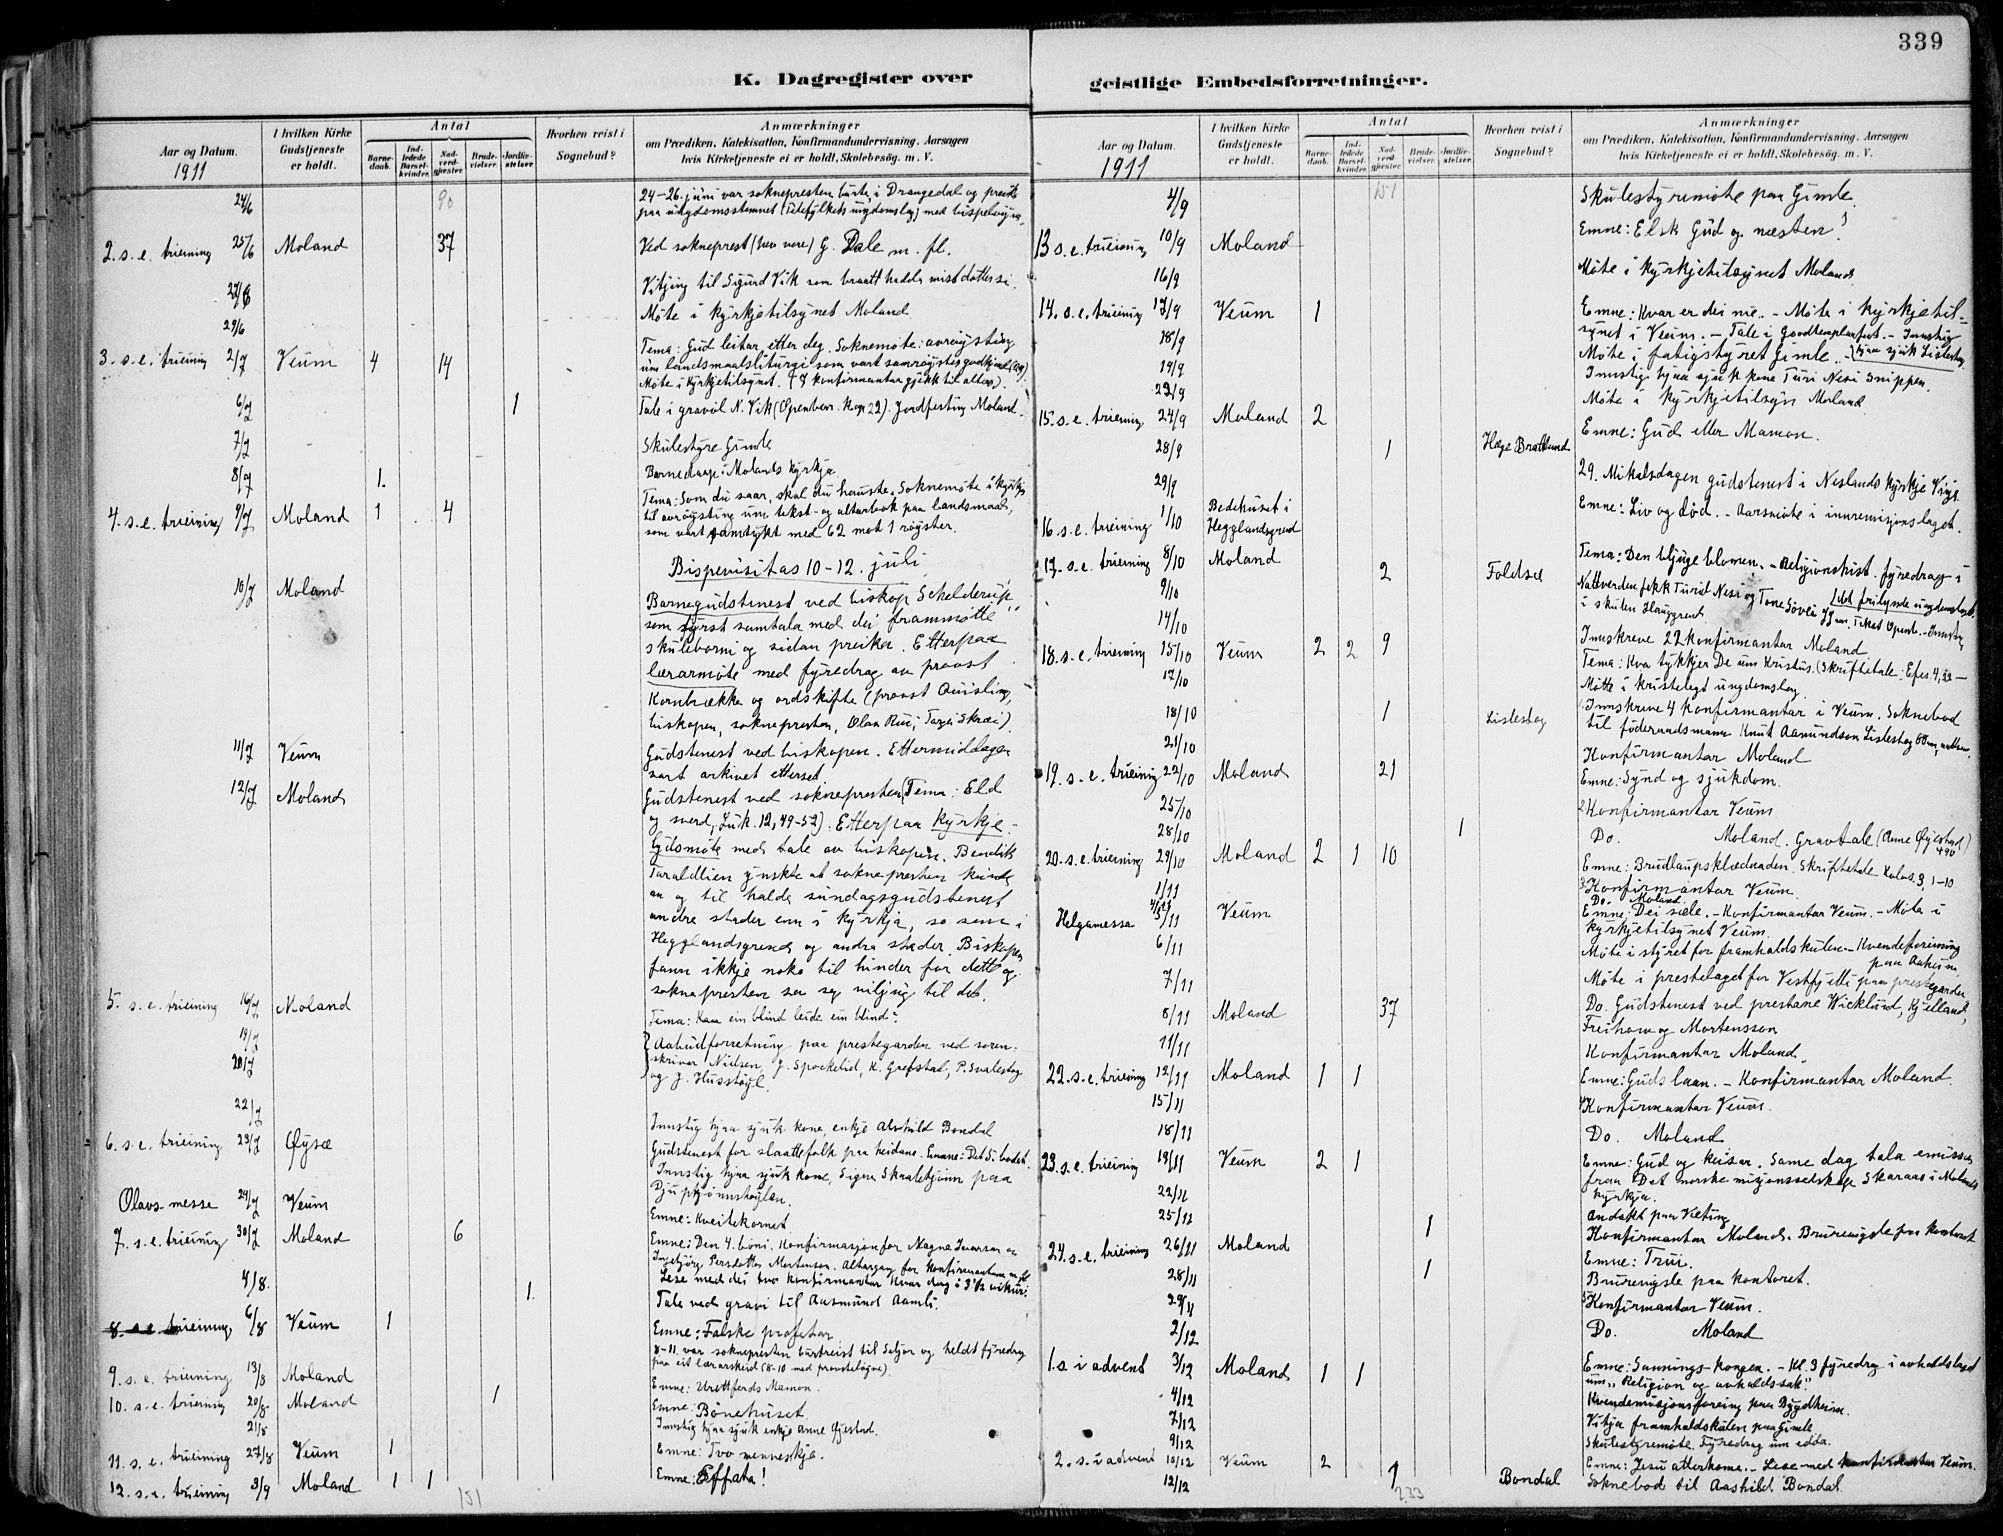 339
K. Dagregister over
geistlige Embedsforretninger.
Aar og Datum.
1911
I hvilken Kirke Gudstjeneste er holdt.
Antal
Barnedaab.
Indledede Barselkvinder.
Nadverdgjæster.
Brudevielser.
Jordfæstelser.
Hvorhen reist i Sognebud?
Anmærkninger
om Prædiken, Katekisation, Konfirmandundervisning. Aarsagen
hvis Kirketjeneste ei er holdt. Skolebesög. m. V.
24/6 90 24-26. juni var soknepresten burte i Drangedal og
paa ungdomsstemnet (Telefylkets ungdomslag) med
2. s. e. trieining 25/6 Moland 37 Ved sokneprest G. Dale m. fl.
Vitjing til Sigurd Vik som hadde mist
29/6 Møte i kyrkjetilsynet Moland
3. s. e. trieining 2/7 Veum 4 14 Tema: Gud leitar etter deg. Soknemøte: avrøysting
um landsmaalsliturgi som vart samrøystes godkjend
Møte i kyrkjetilsynet. (8 konfirmantar gjekk til altars).
6/7 1 Tale i gravøl N. Vik (Openber. kap 22). Jordfesting Moland.
7/7 Skulestyre Gimle
8/7 1. Barnedaap i Molands kyrkja
4. s. e. trieining 9/7 Moland 1 4 Tema: Som du saar, skal du hauste. Soknemøte i kyrkja
til avrøysting um tekst- og alterbok paa landsmaal,
som vart samtykt med 62 mot 1 røyster.
Bispevisitas 10-12. juli
10/7 Moland Barnegudstenest ved biskop Schelderup,
som fyrst samtala med dei frammøtte
skuleborni og sidan preika. Etterpaa
lærarmøte med fyredrag av prost
Kornbrække og ordskifte (prost Quisling,
biskopen, soknepresten, Olav Rui, Targei Skræi).
11/7 Veum Gudstenest ved biskopen. Ettermiddagen
vart arkivet ettersed.
12/7 Moland Gudstenest ved soknepresten (Tema: Eld
og sverd, Luk. 12, 49-52). Etterpaa kyrkje-
lydsmøte med tale av biskopen. Bendik
Taraldlien ynskte at soknepresten kunde
av og til halde sundagsgudstenest
andre stader enn i kyrkja, so som i
Hegglandsgrend og andre stader. Biskopen
fann ikkje noko til hinder for dette og
soknepresten sa seg viljug til det.
5. s. e. trieining 16/7 Moland Tema: Kan ein blind leide ein blind?
19/7 Aabudforretning paa prestegarden ved soren-
20/7 skrivar Nielsen, J. Spockelid, K. Grefstad, P. Svalestog
og J. Husstøyl.
22/7 Innstig hjaa sjuk kone, enkje Aashild Bondal
6. s. e. trieining 23/7 Øysæ Gudstenest for slaattefolk paa heidane. Emne: Det 5. bodet.
Innstig hjaa sjuk kone, Signe Skaaletjønn paa
Djuptjønnstøylen.
Olavs-messe 29/7 Veum Emne: Kveitekornet
7. s. e. trieining 30/7 Moland 6 Emne: Den 4. bøni. Konfirmasjon for Magne Ivarson og
Ingebjørg Persdotter Mortenson. Altargang for konfirmantane m. fl.
Lese med dei two konfirmantar kvar dag i 3 1/2 vikur.
4/8. 1. Tale ved gravi til Aasmund Aamli.
8. s. e. trieining 6/8 Veum 1 Emne: Falske profetar
8-11 var soknepresten burtreist til Seljor og heldt fyredrag
paa eit lærarskeid (8-10 med prosteløyve).
9. s. e. trieining 13/8 Moland Emne: Urettferds Mamon.
10. s. e. trieining 20/8 Moland 1 Emne: Bönehuset
21/8 Innstig hjaa sjuk enkje Anne Øyestad.
11. s. e. trieining 27/8 Veum 1 Emne: Tvo menneskja.
12. s. e. trieining 3/9 Moland 1 1 Emne: Effata!
151
Aar og Datum.
1911
I hvilken Kirke Gudstjeneste er holdt.
Antal
Barnedaab.
Indledede Barselkvinder.
Nadverdgjæster.
Brudevielser.
Jordfæstelser.
Hvorhen reist i Sognebud?
Anmærkninger
om Prædiken, Katekisation, Konfirmandundervisning. Aarsagen
hvis Kirketjeneste ei er holdt. Skolebesög. m. V.
4/9 151 Skulestyremöte paa Gimle.
13 s. e. trieining 10/9 Moland Emne: Elsk Gud og næsten!
16/9 Møte i kyrkjetilsynet Moland
14. s. e. trieining 17/9 Veum 1 Emne: Kvar er dei nie. - Møte i kyrkjetil-
synet i Veum. - Tale i Goodtemplarfest. - Innstig
18/9 Møte i fatigstyret Gimle. hjaa sjuk Listestog
19/9 Innstig hjaa sjuk kone Turi Nesi Snippen.
22/9 Møte i kyrkjetilsyn Moland
15. s. e. trieining 24/9 Moland 2 Emne: Gud eller Mamon.
28/9 1 Hæge Bratlund
29/9 29. Mikalsdagen gudstenest i Neslands kyrkje Vinje.
16. s. e. trieining 1/10 Bedehuset i Hegglandsgrend Emne: Liv og död. - Aarsmöte i innremisjonslaget.
17. s. e. trieining 8/10 Moland Tema: Den blyuge blomen. - Religionshist. fyredrag i
9/10 2 Foldsæ Nattverden fekk Turid Nesi og Tone Søvli
14/10 Innskreve 22 konfirmantar Moland
18. s. e. trieining 15/10 Veum 2 2 9 Tema: Kva tykkjer De um Kristus. (Skriftetale: Efes. 4, 22 -
17/10 Møte i kristelegt ungdomslag
18/10 1 Listestog Innskreve 4 konfirmantar i Veum. Soknebod
til föderaadsmann Knut Aamundson Listestog
21/10 Konfirmantar Moland
19. s. e. trieining 22/10 Moland 21 Emne: Synd og sjukdom.
25/10 2 Konfirmantar Veum
28/10 1 Do. Moland. Gravtale (Anne Øyestad)
20. s. e. trieining 29/10 Moland 2 1 10 Emne: Brudlaupsklædnaden. Skriftetale Kolos. 3, 1-10
1/11 3 Konfirmantar Veum
Do. Moland
Helgamessa 5/11 Veum Emne: Dei sæle. - Konfirmantar Veum. - Møte i
kyrkjetilsynet Veum.
6/11 Møte i styret for framhaldskulen. - Kvendeforeining
7/11 Møte i prestelaget for Vestfjelli paa prestegarden
8/11 Moland 37 Do. Gudstenest ved prestane Wicklund, Kjelland,
Freihow og Mortensson
11/11 Konfirmantar Moland.
22. s. e. trieining 12/11 Moland 1 1 Emne: Guds laan. - Konfirmantar Moland.
15/11 4 Konfirmantar Veum.
18/11 Do. Moland
23. s. e. trieining 19/11 Veum 2 1 Emne: Gud og keisar. Same dag tala emissær
fraa Det norske misjonsselskap Skaraas i Molands
kyrkja.
22/11 Andakt paa Veting
25/11 1 Konfirmantar Moland. Brurevigsle paa kontoret
24. s. e. trieining 26/11 Moland Emne: Trui.
28/11 1 Brurevigsle paa kontoret.
29/11 5 Konfirmantar Veum.
2/12 Do. Moland
1. s. i advent 3/12 Moland 1 1 Emne: Sannings-kongen. - Kl. 3 fyredrag i avhaldslaget
um "Religion og avhaldssak".
4/12 Kvendemisjonsforeing paa Bygdheim.
7/12 Vitja framhaldskulen paa Gimle
9/12 Skulestyremöte. Fyredrag um edda.
2. s. i advent 10/12 Veum 2 Emne: Jesu atterkoma. - Lese med konfirmantar Veum.
12/12 1 Bondal Soknebod til Aashild Bondal.
233